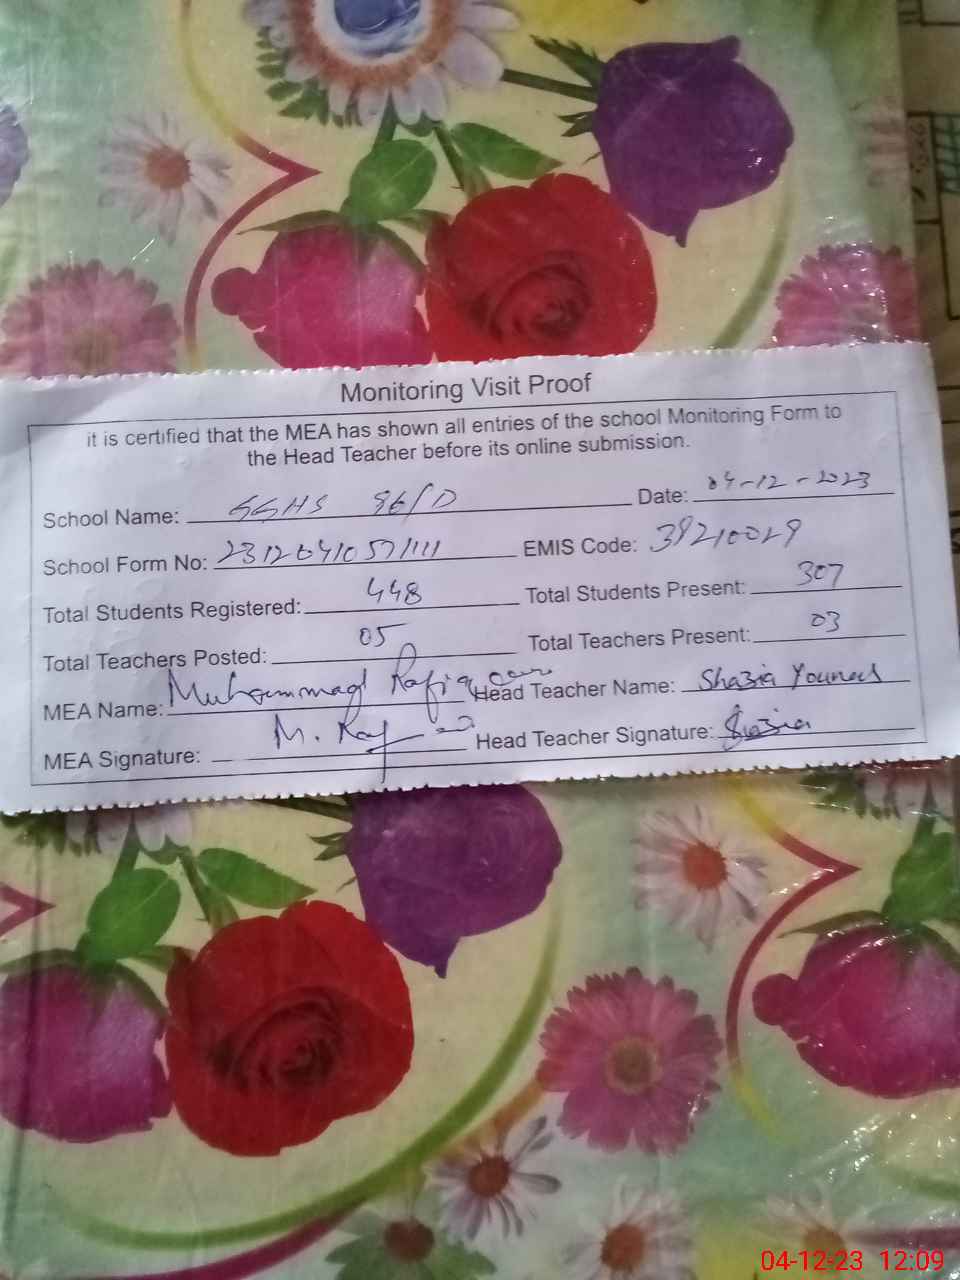 Monitoring Visit Proof
it is certified that the MEA has shown all entries of the school Monitoring Form to
the Head Teacher before its online submission.
School Name: GGHS 96/D Date: 04-12-2023
School Form No: EMIS Code: 39210029
Total Students Registered: 448 Total Students Present: 307
Total Teachers Posted: 05 Total Teachers Present: 03
MEA Name: Muhammad Rafiq Head Teacher Name: Shazia Younas
MEA Signature: M. Raf Head Teacher Signature: Shazia
04-12-23 12:09